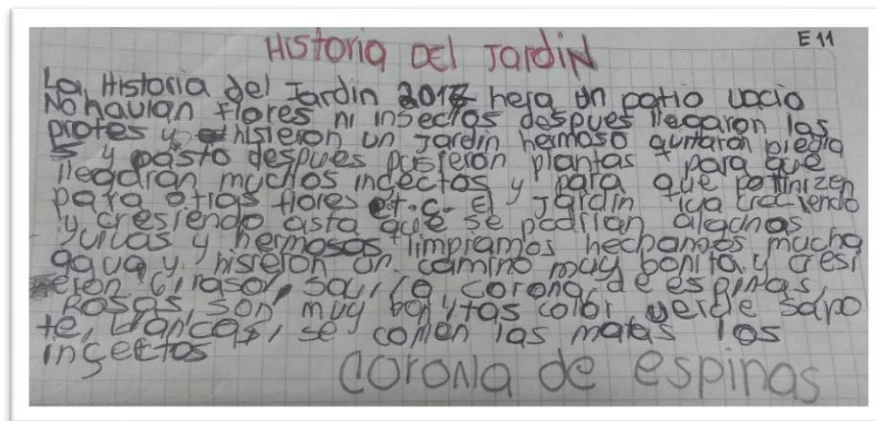 E11
Historia DEl Jardin
La Historia del Jardin 2017 hera un patio vacio
No havian flores ni insectos despues llegaron las
profes y hisieron un Jardin hermoso quitaron piedra
s y pasto despues pusieron plantas para que
llegaran muchos insectos y para que polinizen
para otras flores et.c. El Jardin iva creciendo
y cresiendo asta que se podrian algunas
yucas y hermosos limpiamos hechamos mucha
agua y hisieron un camino muy bonita y cresi
eron Girasol, la corona de espinas,
Rosas, son muy bonytas color verde sapo
te, blancas, se comen las matas los
insectos
corona de espinas